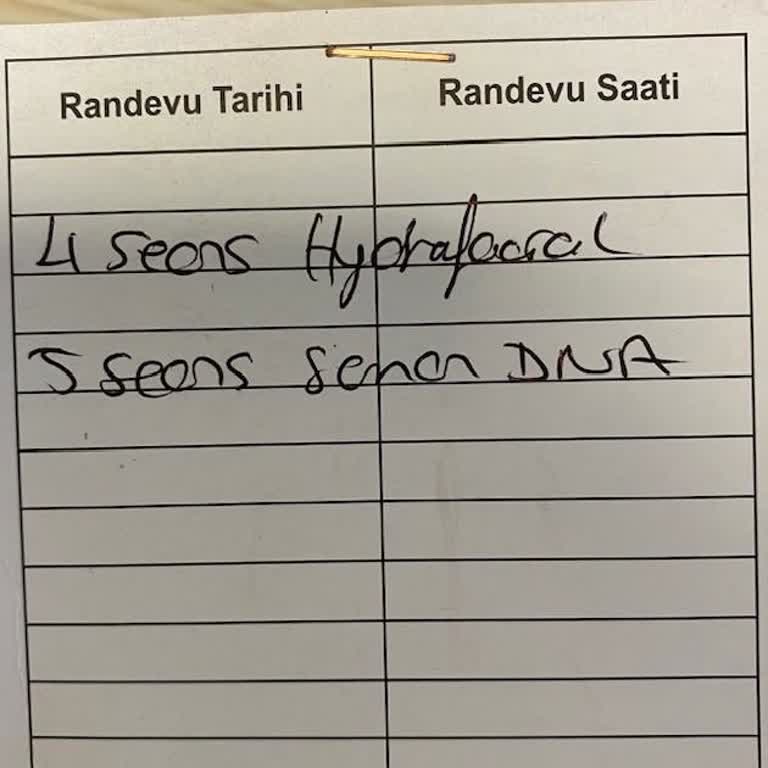 Randevu Tarihi Randevu Saati
4 Seans Hydrafacial
5 Seans Somon DNA